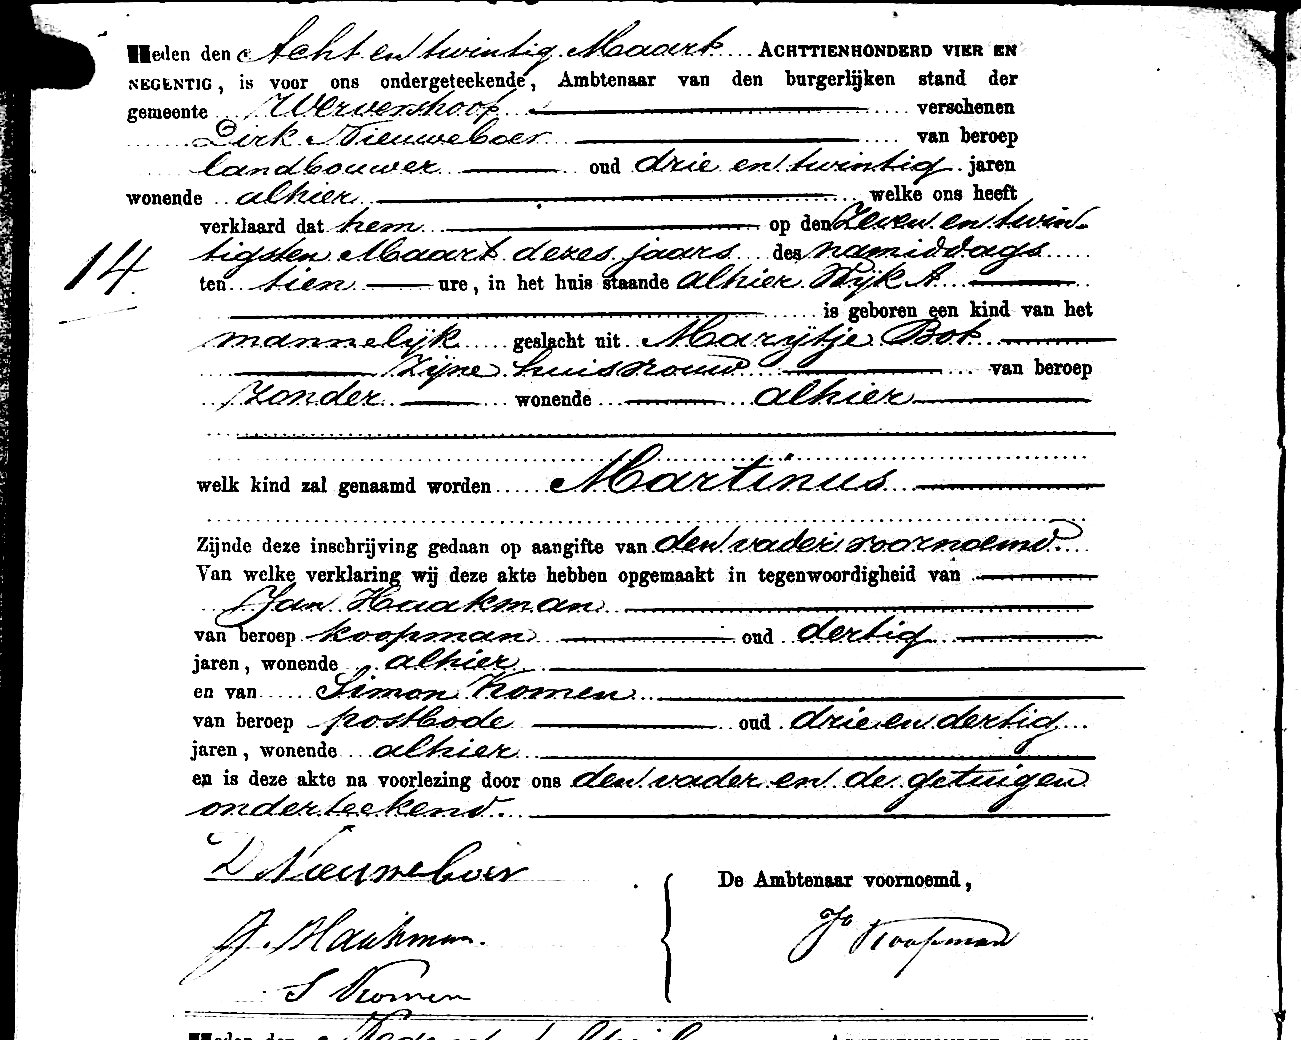 Heden den Acht en twintig Maart ACHTTIENHONDERD VIER EN
NEGENTIG, is voor ons ondergeteekende, Ambtenaar van den burgerlijken stand der
gemeente Wervershoof verschenen
Dirk Nieuweboer van beroep
landbouwer oud drie en twintig jaren
wonende alhier welke ons heeft
verklaard dat hem op den Zeven en twin-
14
tigsten Maart dezes jaars des namiddags
ten tien ure, in het huis staande alhier Wijk A.
is geboren een kind van het
mannelijk geslacht uit Marijtje Bot
zijne huisvrouw van beroep
zonder wonende alhier
welk kind zal genaamd worden Martinus
Zijnde deze inschrijving gedaan op aangifte van den vader voornoemd.
Van welke verklaring wij deze akte hebben opgemaakt in tegenwoordigheid van
Jan Haakman
van beroep koopman oud dertig
jaren, wonende alhier
en van Simon Komen
van beroep postbode oud drie en dertig
jaren, wonende alhier
en is deze akte na voorlezing door ons den vader en de getuigen
onderteekend.
D Nieuweboer
De Ambtenaar voornoemd,
J. Haakman.
Koopman
S Komen
Heden den